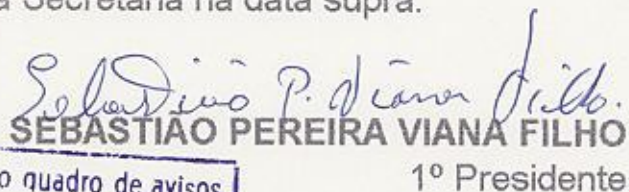 a Secretaria na data supra.
Sebastião P. Viana Filho.
SEBASTIÃO PEREIRA VIANA FILHO
o quadro de avisos
1º Presidente